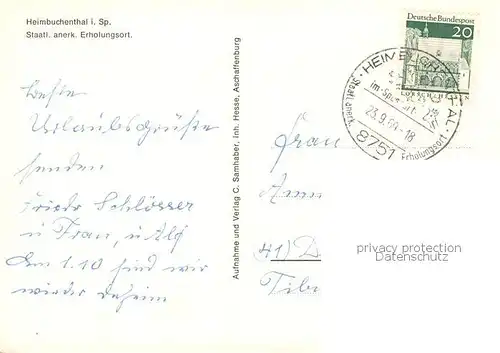 Heimbuchenthal i. Sp.
Staatl. anerk. Erholungsort.
Deutsche Bundespost
20
LORSCH
HEIMBUCHENTHAL
im Spessart
23.9.69-18
8751
Staatl. anerk. Erholungsort
Aufnahme und Verlag C. Samhaber, Inh. Hesse, Aschaffenburg
Beste
Urlaubsgrüße
senden
Friedr Schlösser
u Frau, u Alf
Am 1.10 sind wir
wieder daheim
Frau
41) D
privacy protection
Datenschutz